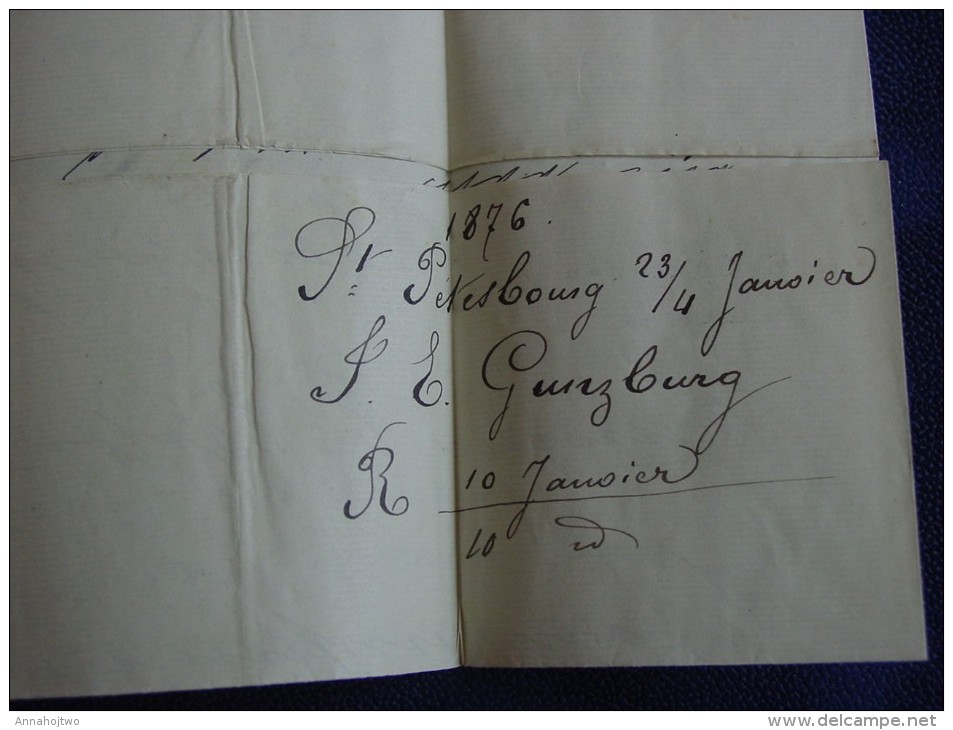 1876.
St Petersbourg 23/4 Janvier
J. E. Gunzburg
R 10 Janvier
10 d
Annahojtwo
www.delcampe.net